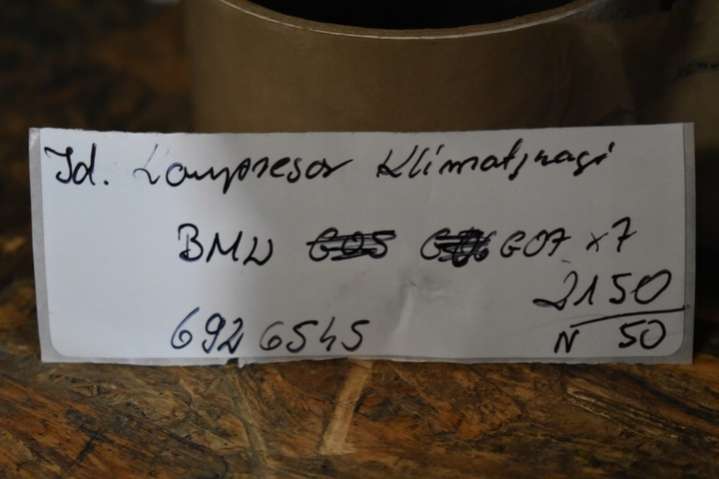 Id. Kompresor Klimatyzacji
BMW G05 G06 G07 x7
2150
6926545 N 50